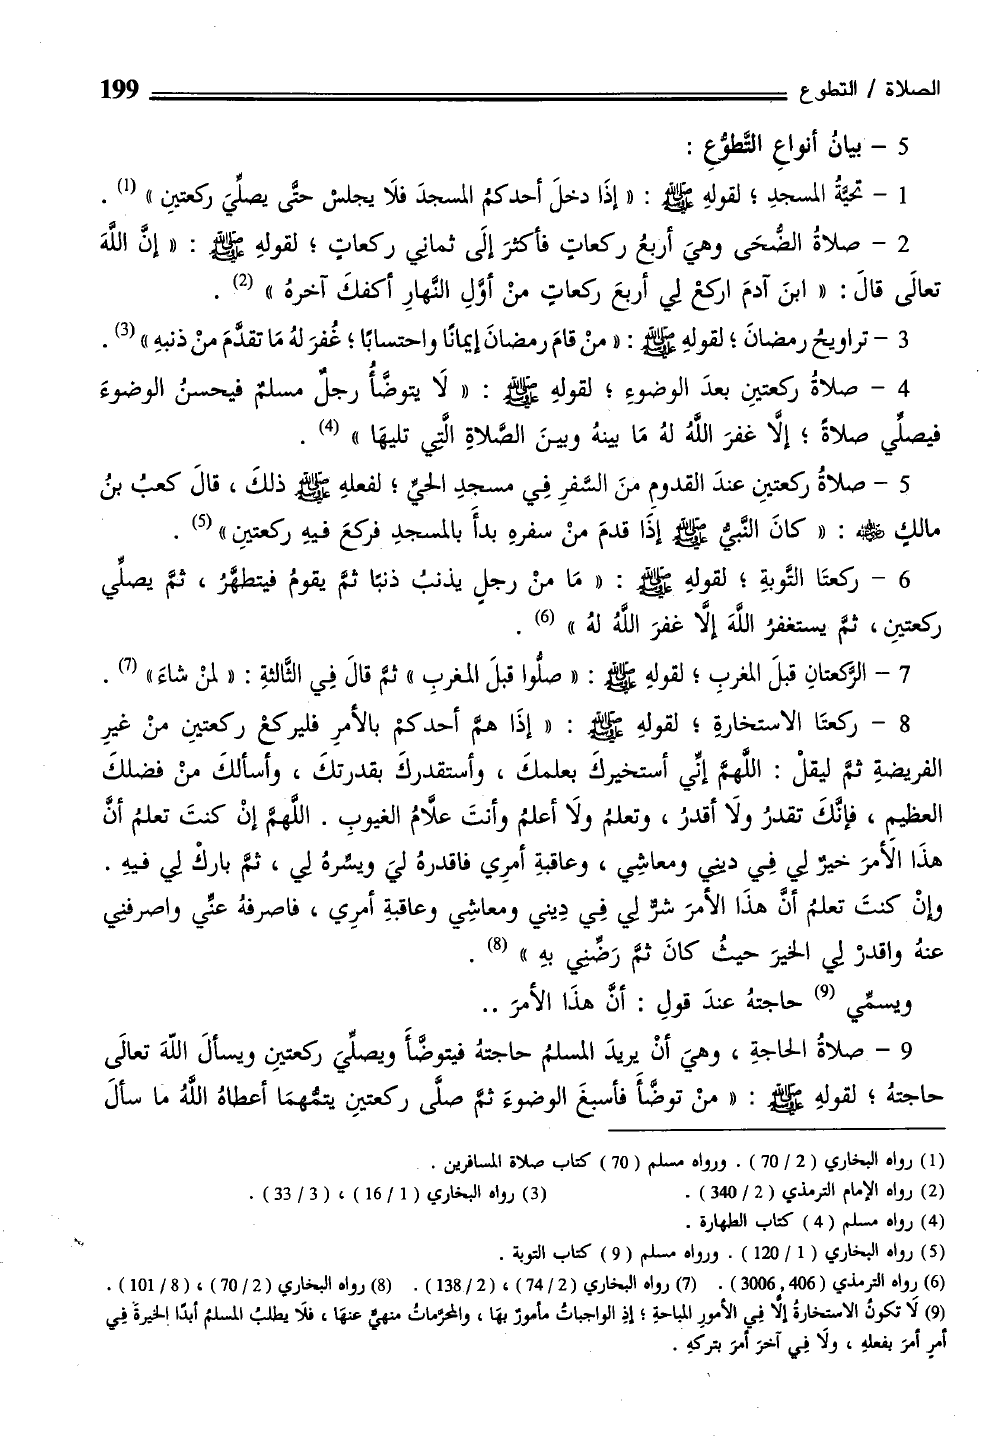 الصلاة / التطوع 199
5 - بيانُ أنواعِ التَّطوُّعِ :
1 - تحيَّةُ المسجدِ ؛ لقولهِ ﷺ : « إذَا دخلَ أحدكمُ المسجدَ فلَا يجلسْ حتَّى يصلِّيَ ركعتينِ » (1) .
2 - صلاةُ الضُّحَى وهيَ أربعُ ركعاتٍ فأكثرَ إلَى ثمانِي ركعاتٍ ؛ لقولهِ ﷺ : « إنَّ اللَّهَ
تعالَى قالَ : « ابنَ آدمَ اركعْ لِي أربعَ ركعاتٍ منْ أوَّلِ النَّهارِ أكفكَ آخرهُ » (2) .
3 - تراويحُ رمضانَ ؛ لقولهِ ﷺ : « منْ قامَ رمضانَ إيمانًا واحتسابًا ؛ غُفرَ لهُ مَا تقدَّمَ منْ ذنبهِ » (3) .
4 - صلاةُ ركعتينِ بعدَ الوضوءِ ؛ لقولهِ ﷺ : « لَا يتوضَّأُ رجلٌ مسلمٌ فيحسنُ الوضوءَ
فيصلِّي صلاةً ؛ إلَّا غفرَ اللَّهُ لهُ مَا بينهُ وبينَ الصَّلاةِ الَّتِي تليهَا » (4) .
5 - صلاةُ ركعتينِ عندَ القدومِ منَ السَّفرِ فِي مسجدِ الحيِّ ؛ لفعلهِ ﷺ ذلكَ ، قالَ كعبُ بنُ
مالكٍ رضي الله عنه : « كانَ النَّبيُّ ﷺ إذَا قدمَ منْ سفرهِ بدأَ بالمسجدِ فركعَ فيهِ ركعتينِ » (5) .
6 - ركعتَا التَّوبةِ ؛ لقولهِ ﷺ : « مَا منْ رجلٍ يذنبُ ذنبًا ثمَّ يقومُ فيتطهَّرُ ، ثمَّ يصلِّي
ركعتينِ ، ثمَّ يستغفرُ اللَّهَ إلَّا غفرَ اللَّهُ لهُ » (6) .
7 - الرَّكعتانِ قبلَ المغربِ ؛ لقولهِ ﷺ : « صلُّوا قبلَ المغربِ » ثمَّ قالَ فِي الثَّالثةِ : « لمنْ شاءَ » (7) .
8 - ركعتَا الاستخارةِ ؛ لقولهِ ﷺ : « إذَا همَّ أحدكمْ بالأمرِ فليركعْ ركعتينِ منْ غيرِ
الفريضةِ ثمَّ ليقلْ : اللَّهمَّ إنِّي أستخيركَ بعلمكَ ، وأستقدركَ بقدرتكَ ، وأسألكَ منْ فضلكَ
العظيمِ ، فإنَّكَ تقدرُ ولَا أقدرُ ، وتعلمُ ولَا أعلمُ وأنتَ علَّامُ الغيوبِ . اللَّهمَّ إنْ كنتَ تعلمُ أنَّ
هذَا الأمرَ خيرٌ لِي فِي دينِي ومعاشِي ، وعاقبةِ أمرِي فاقدرهُ ليَ ويسِّرهُ لِي ، ثمَّ باركْ لِي فيهِ .
وإنْ كنتَ تعلمُ أنَّ هذَا الأمرَ شرٌّ لِي فِي دِينِي ومعاشِي وعاقبةِ أمرِي ، فاصرفهُ عنِّي واصرفنِي
عنهُ واقدرْ لِي الخيرَ حيثُ كانَ ثمَّ رَضِّنِي بهِ » (8) .
ويسمِّي (9) حاجتهُ عندَ قولِ : أنَّ هذَا الأمرَ ..
9 - صلاةُ الحاجةِ ، وهيَ أنْ يريدَ المسلمُ حاجتهُ فيتوضَّأَ ويصلِّيَ ركعتينِ ويسألَ اللَّهَ تعالَى
حاجتهُ ؛ لقولهِ ﷺ : « منْ توضَّأَ فأسبغَ الوضوءَ ثمَّ صلَّى ركعتينِ يتمُّهمَا أعطاهُ اللَّهُ ما سألَ
(1) رواه البخاري ( 2 / 70 ) . ورواه مسلم ( 70 ) كتاب صلاة المسافرين .
(2) رواه الإمام الترمذي ( 2 / 340 ) . (3) رواه البخاري ( 1 / 16 ) ، ( 3 / 33 ) .
(4) رواه مسلم ( 4 ) كتاب الطهارة .
(5) رواه البخاري ( 1 / 120 ) . ورواه مسلم ( 9 ) كتاب التوبة .
(6) رواه الترمذي ( 406 , 3006 ) . (7) رواه البخاري ( 2 / 74 ) ، ( 2 / 138 ) . (8) رواه البخاري ( 2 / 70 ) ، ( 8 / 101 ) .
(9) لَا تكونُ الاستخارةُ إلَّا فِي الأمورِ المباحةِ ؛ إذِ الواجباتُ مأمورٌ بهَا ، والمحرَّماتُ منهيٌّ عنهَا ، فلَا يطلبُ المسلمُ أبدًا الخيرةَ فِي
أمرٍ أمرَ بفعلهِ ، ولَا فِي آخرَ أمرَ بتركهِ .